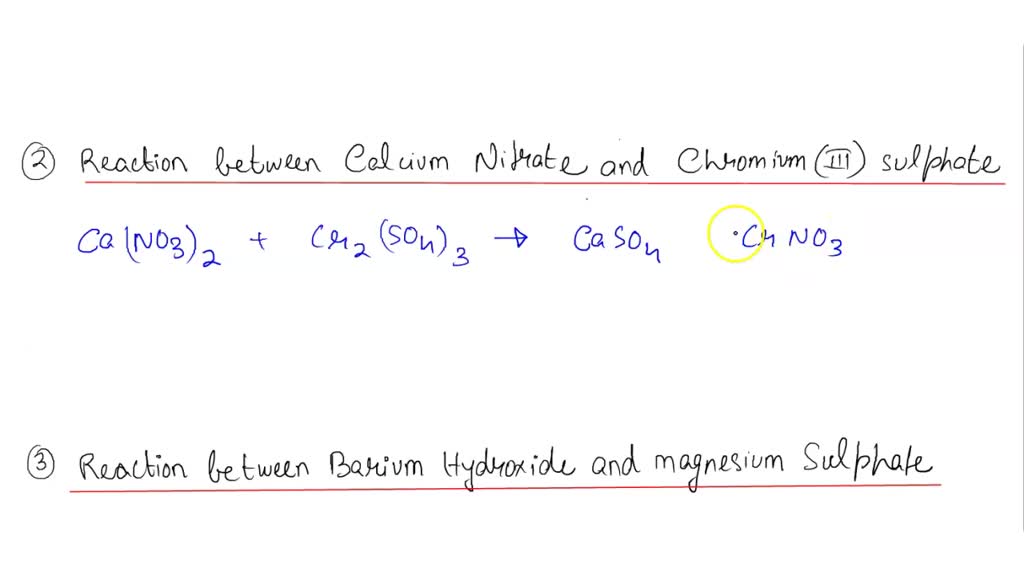 ② Reaction between Calcium Nitrate and Chromium (III) sulphate
Ca(NO3)2 + Cr2(SO4)3 → CaSO4 ·CrNO3
③ Reaction between Barium Hydroxide and magnesium Sulphate